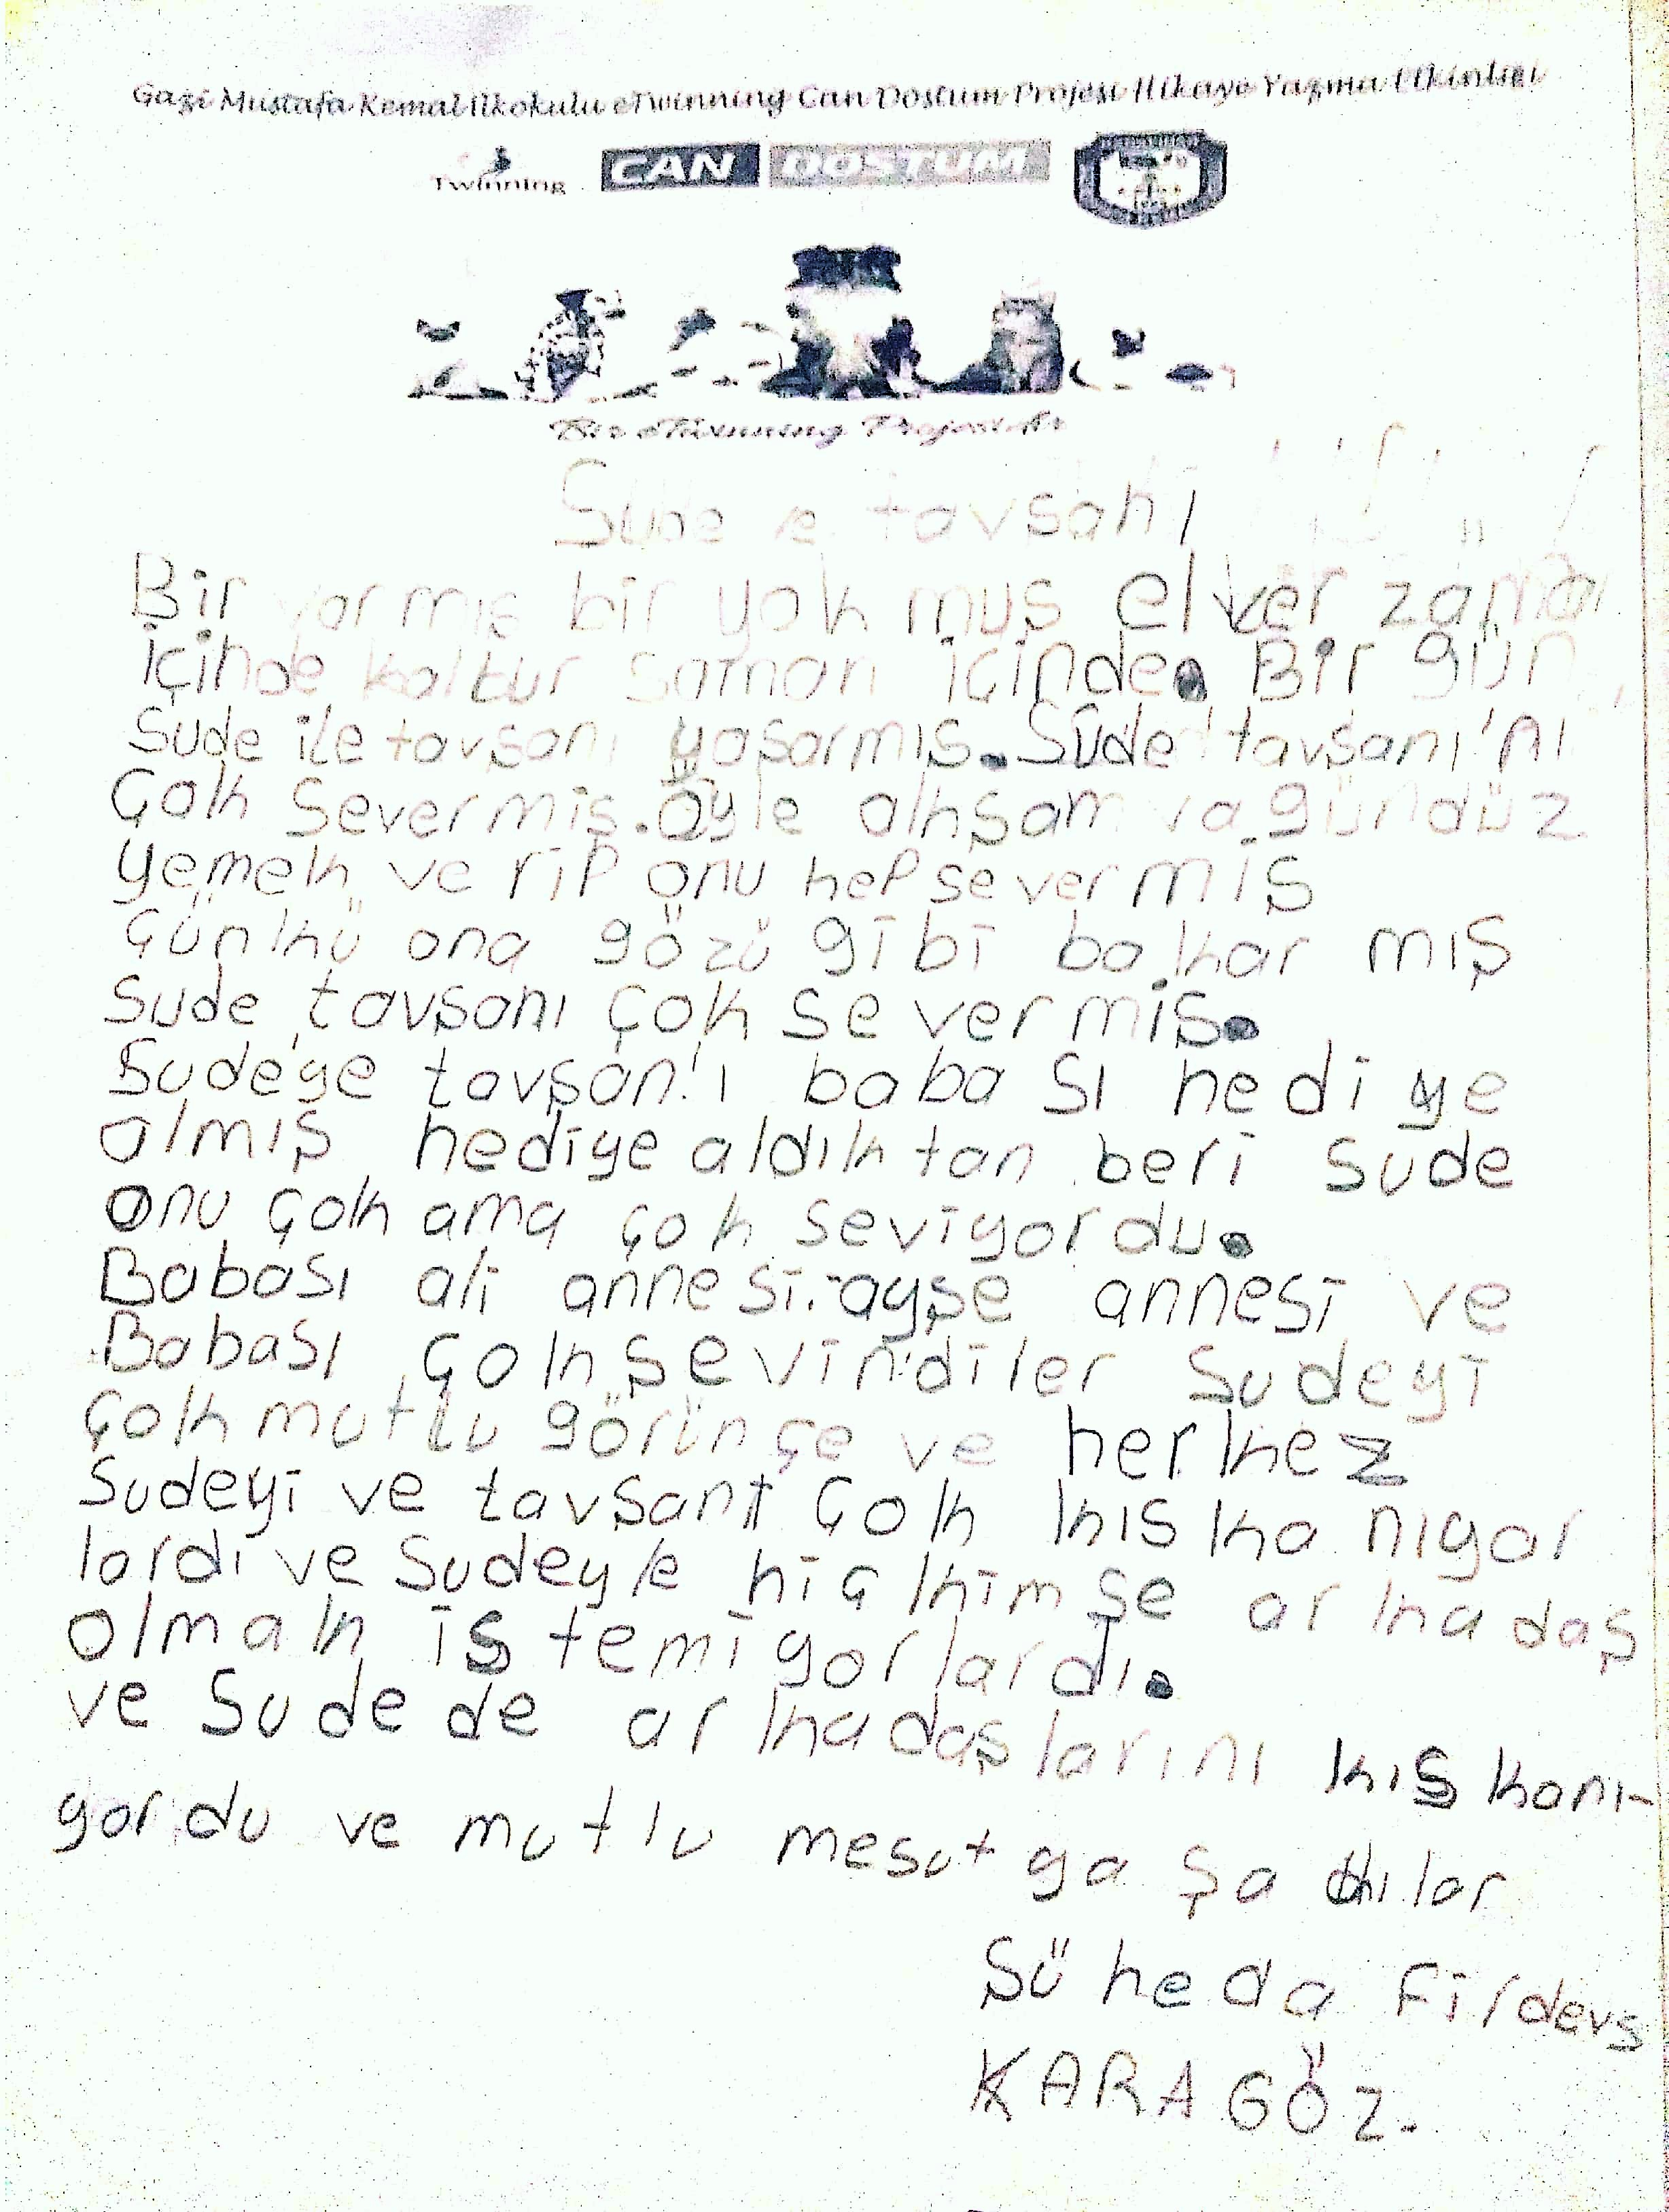 Gazi Mustafa Kemal İlkokulu eTwinning Can Dostum Projesi Hikaye Yazma Etkinliği
Twinning CAN DOSTUM
Bir eTwinning Projesidir
Sude ve tavşanı
Bir varmış bir yok muş elver zaman
içinde kalbur saman içinde. Bir gün
Sude ile tavşanı yaşarmış. Sude tavşanı'nı
Çok severmiş. Öyle akşam va gündüz
yemek ve rip onu hep se ver miş
Çünkü ona gözü gibi ba kar mış
Sude tavşanı çok se ver miş.
Sude'ye tavşan'ı baba sı hedi ye
almış hediye aldık tan beri Sude
onu çok ama çok seviyordu.
Babası ali annesi ayşe annesi ve
Babası çok şevindiler Sudeyi
çok mutlu görünçe ve herkez
Sudeyi ve tavşanı çok kıs ka nıyor
lardı ve Sudeyle hiç kimşe ar kadaş
olmak is temiyorlardı.
ve Sude de ar kadaşlarını kıs kanı-
yordu ve mutlu mesut ya şa dılar
Şü heda Firdevs
KARAGÖZ.